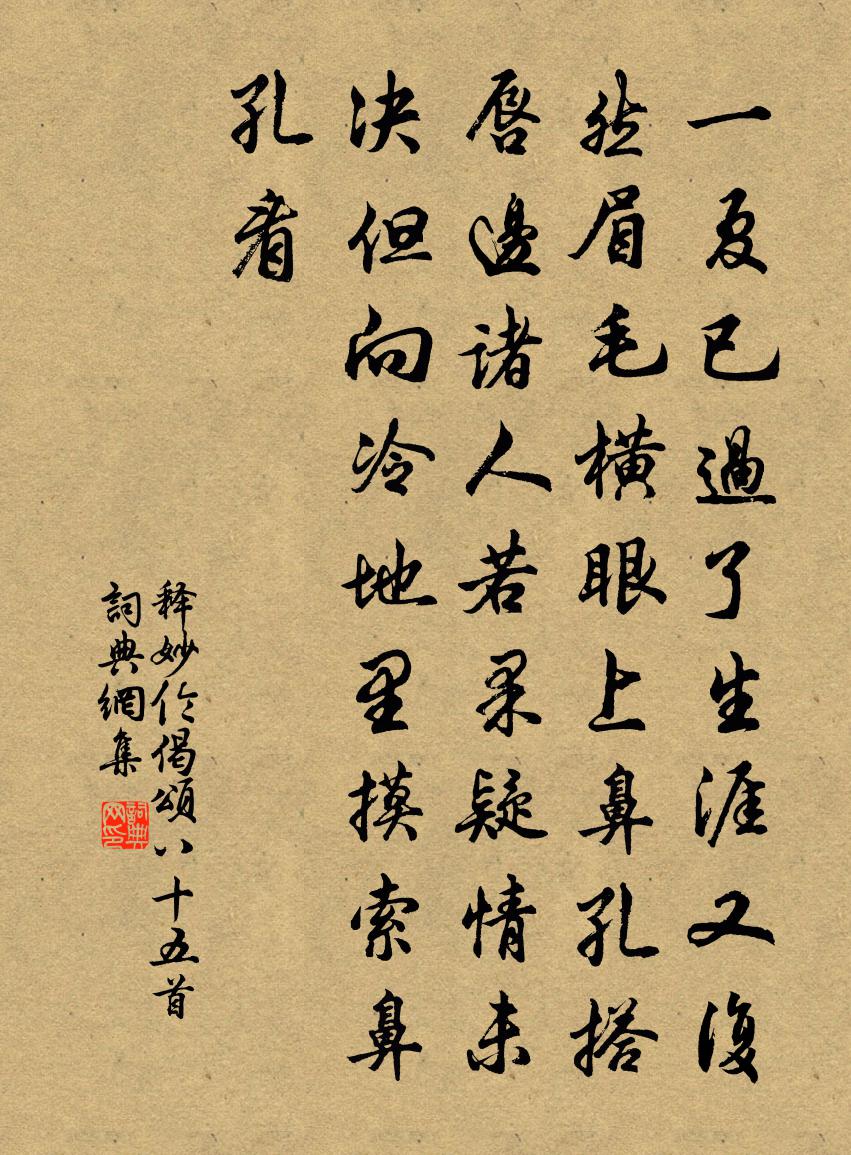 一夏已過了生涯又復
然眉毛橫眼上鼻孔搭
唇邊諸人若果疑情未
决但向冷地里摸索鼻
孔看
释妙伦偈頌八十五首
詞典網集
詞典网印